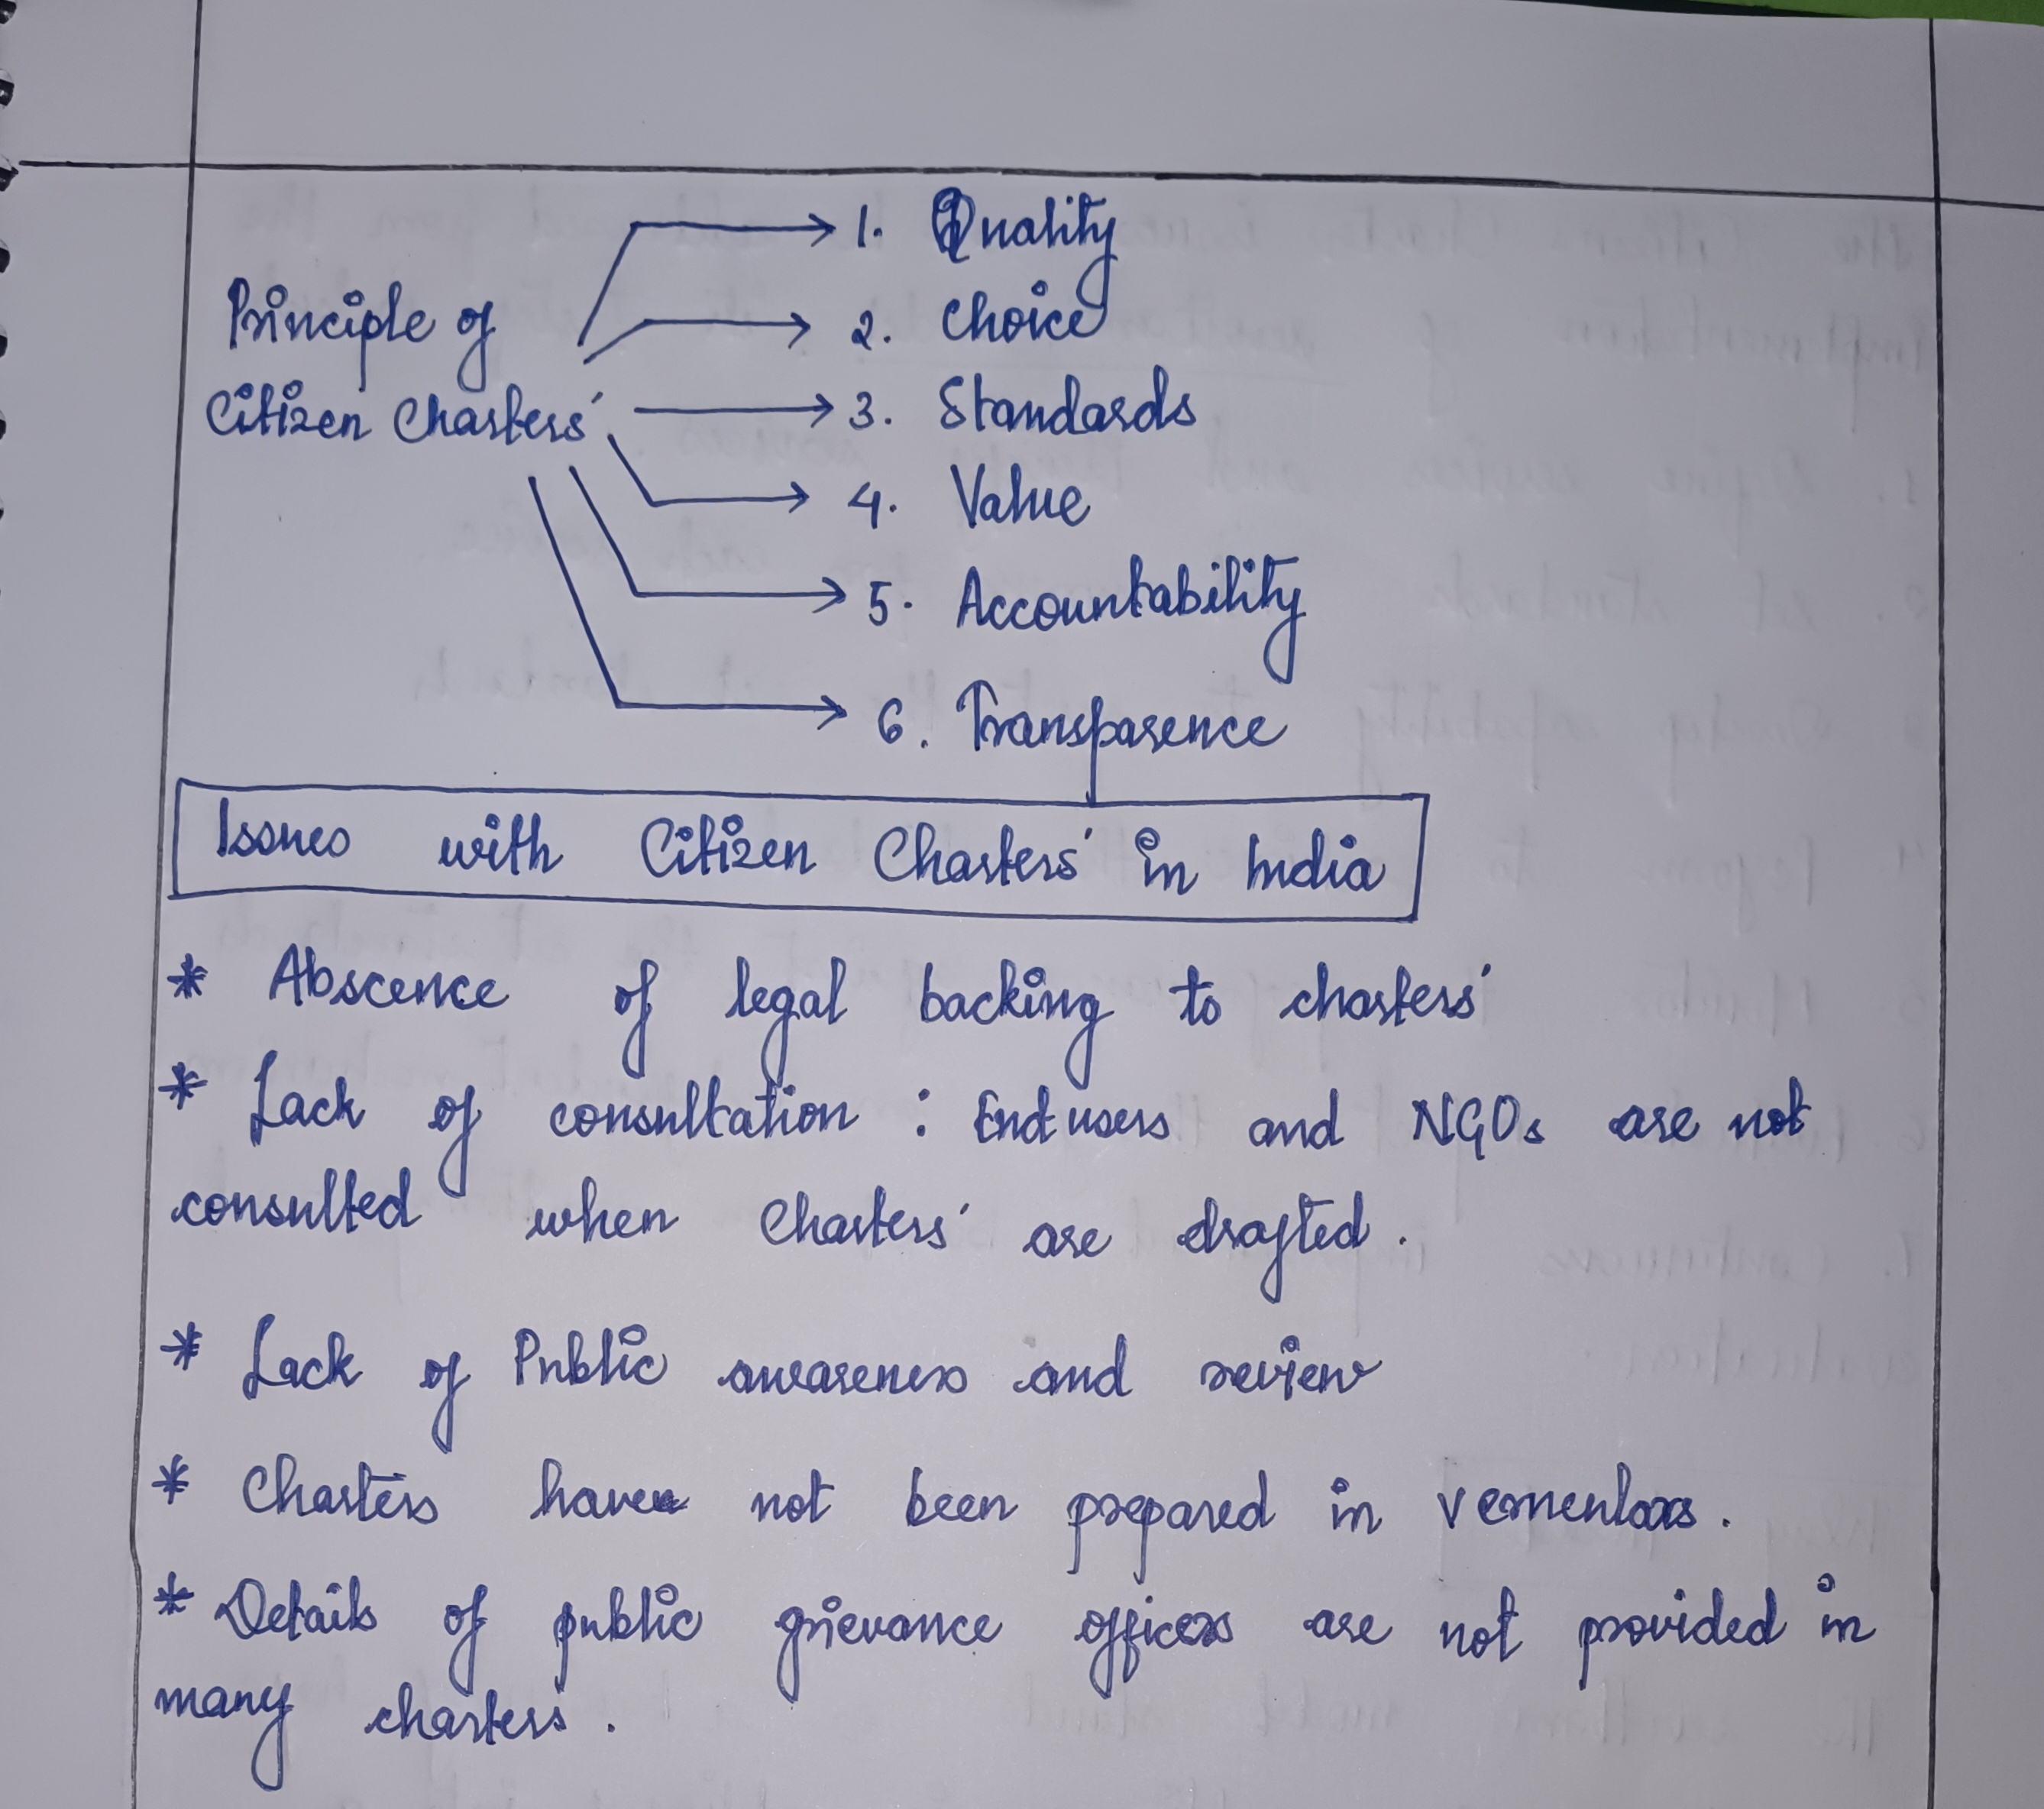 1. Quality
Principle of
2. Choice
Citizen Charters'
3. Standards
4. Value
5. Accountability
6. Transparence
Issues with Citizen Charters' in India
* Abscence of legal backing to charters'
* Lack of consultation : End users and NGOs are not
consulted when Charters' are drafted.
* Lack of Public awareness and review
* Charters have not been prepared in vernenlars.
* Details of public grievance officers are not provided in
many charters'.